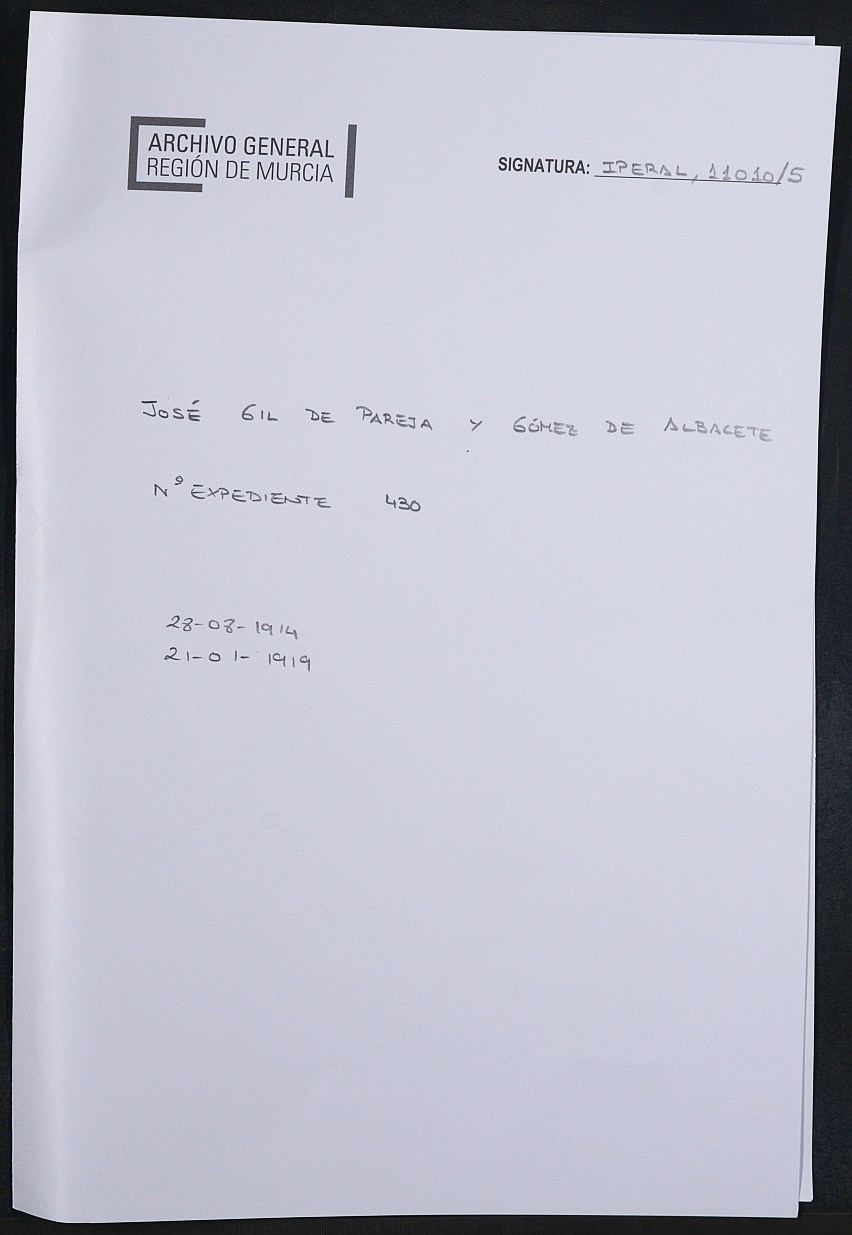 ARCHIVO GENERAL
REGIÓN DE MURCIA
SIGNATURA: IPERAL, 11010/5
JOSÉ GIL DE PAREJA Y GÓMEZ DE ALBACETE
Nº EXPEDIENTE 430
28-08-1914
21-01-1919